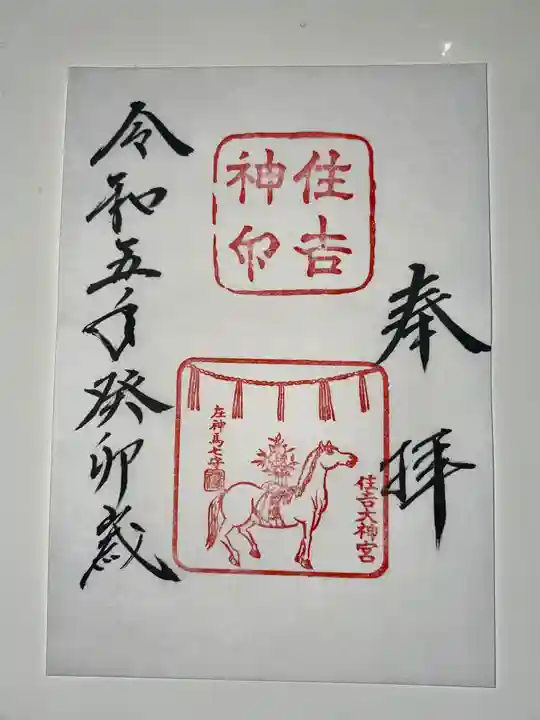 奉拝
住吉
神印
住吉大神宮
左神馬七才
令和五年癸卯歳